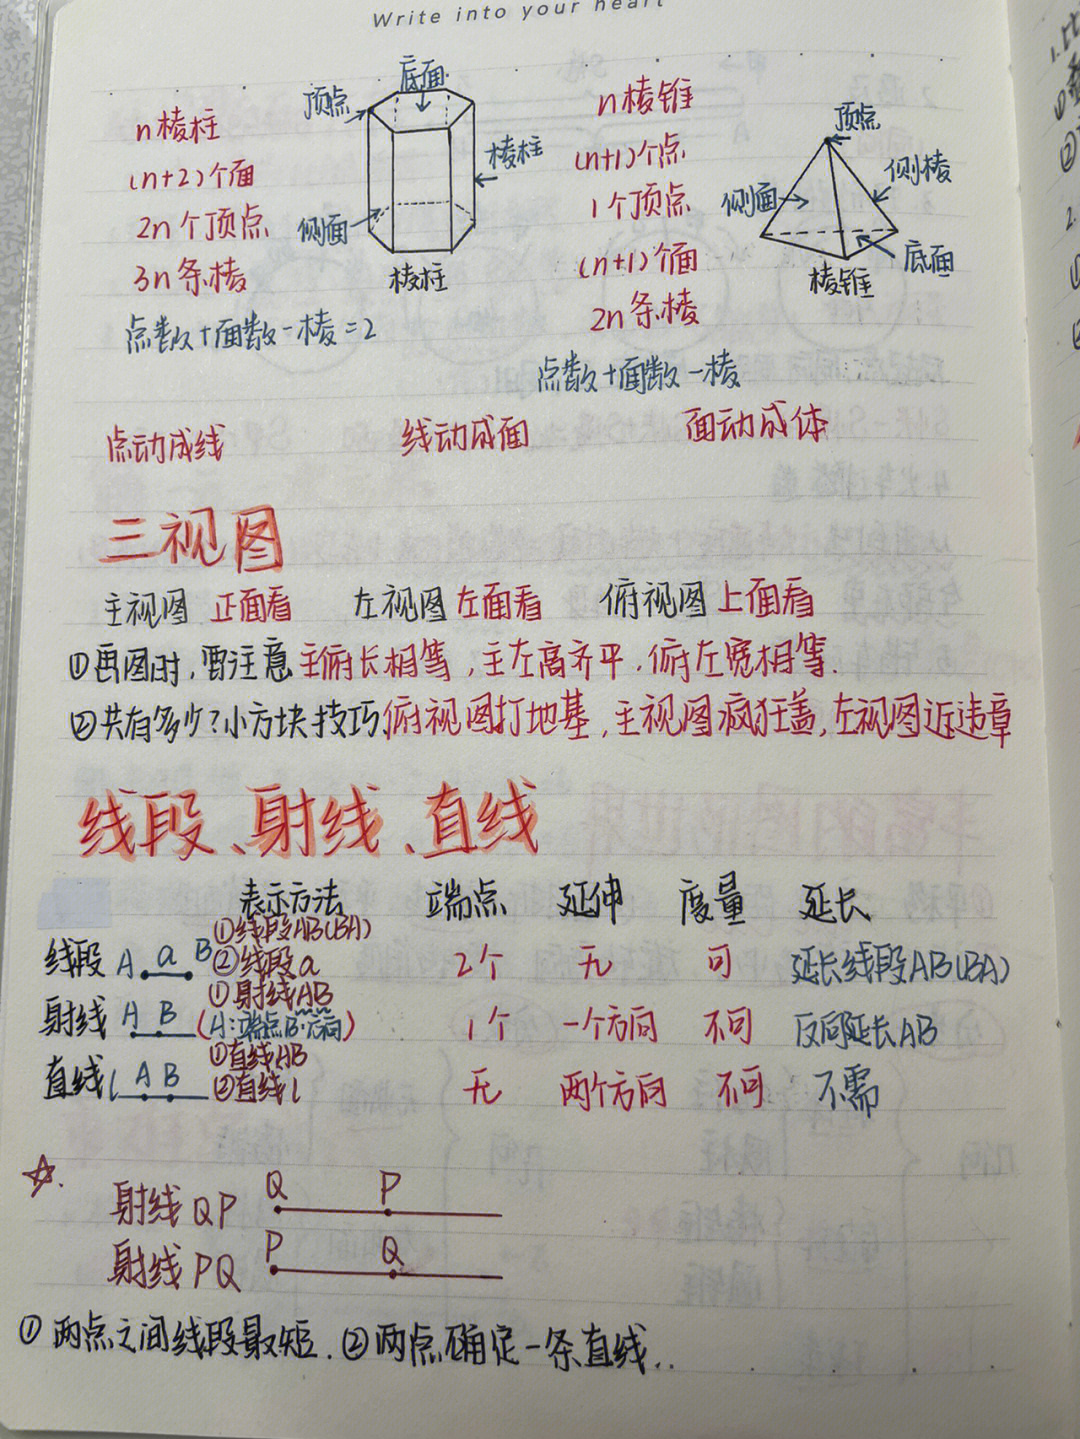 Write into your heart
n棱柱
(n+2)个面
2n个顶点
3n条棱
点数+面数-棱=2
顶点
底面
棱柱
侧面
棱柱
n棱锥
(n+1)个点
1个顶点
(n+1)个面
2n条棱
点数+面数-棱
顶点
侧棱
侧面
底面
棱锥
点动成线 线动成面 面动成体
三视图
主视图 正面看 左视图 左面看 俯视图 上面看
①画图时,需注意 主俯长相等,主左高齐平,俯左宽相等.
②共有多少?小方块技巧,俯视图打地基,主视图疯狂盖,左视图近违章
线段、射线、直线
表示方法 端点 延伸 度量 延长
线段 A a B ①线段AB(BA) ②线段a 2个 无 可 延长线段AB(BA)
射线 A B ①射线AB (A:端点B:方向) 1个 一个方向 不可 反向延长AB
直线l A B ①直线AB ②直线l 无 两个方向 不可 不需
☆.
射线QP Q P
射线PQ P Q
①两点之间线段最短.②两点确定一条直线..